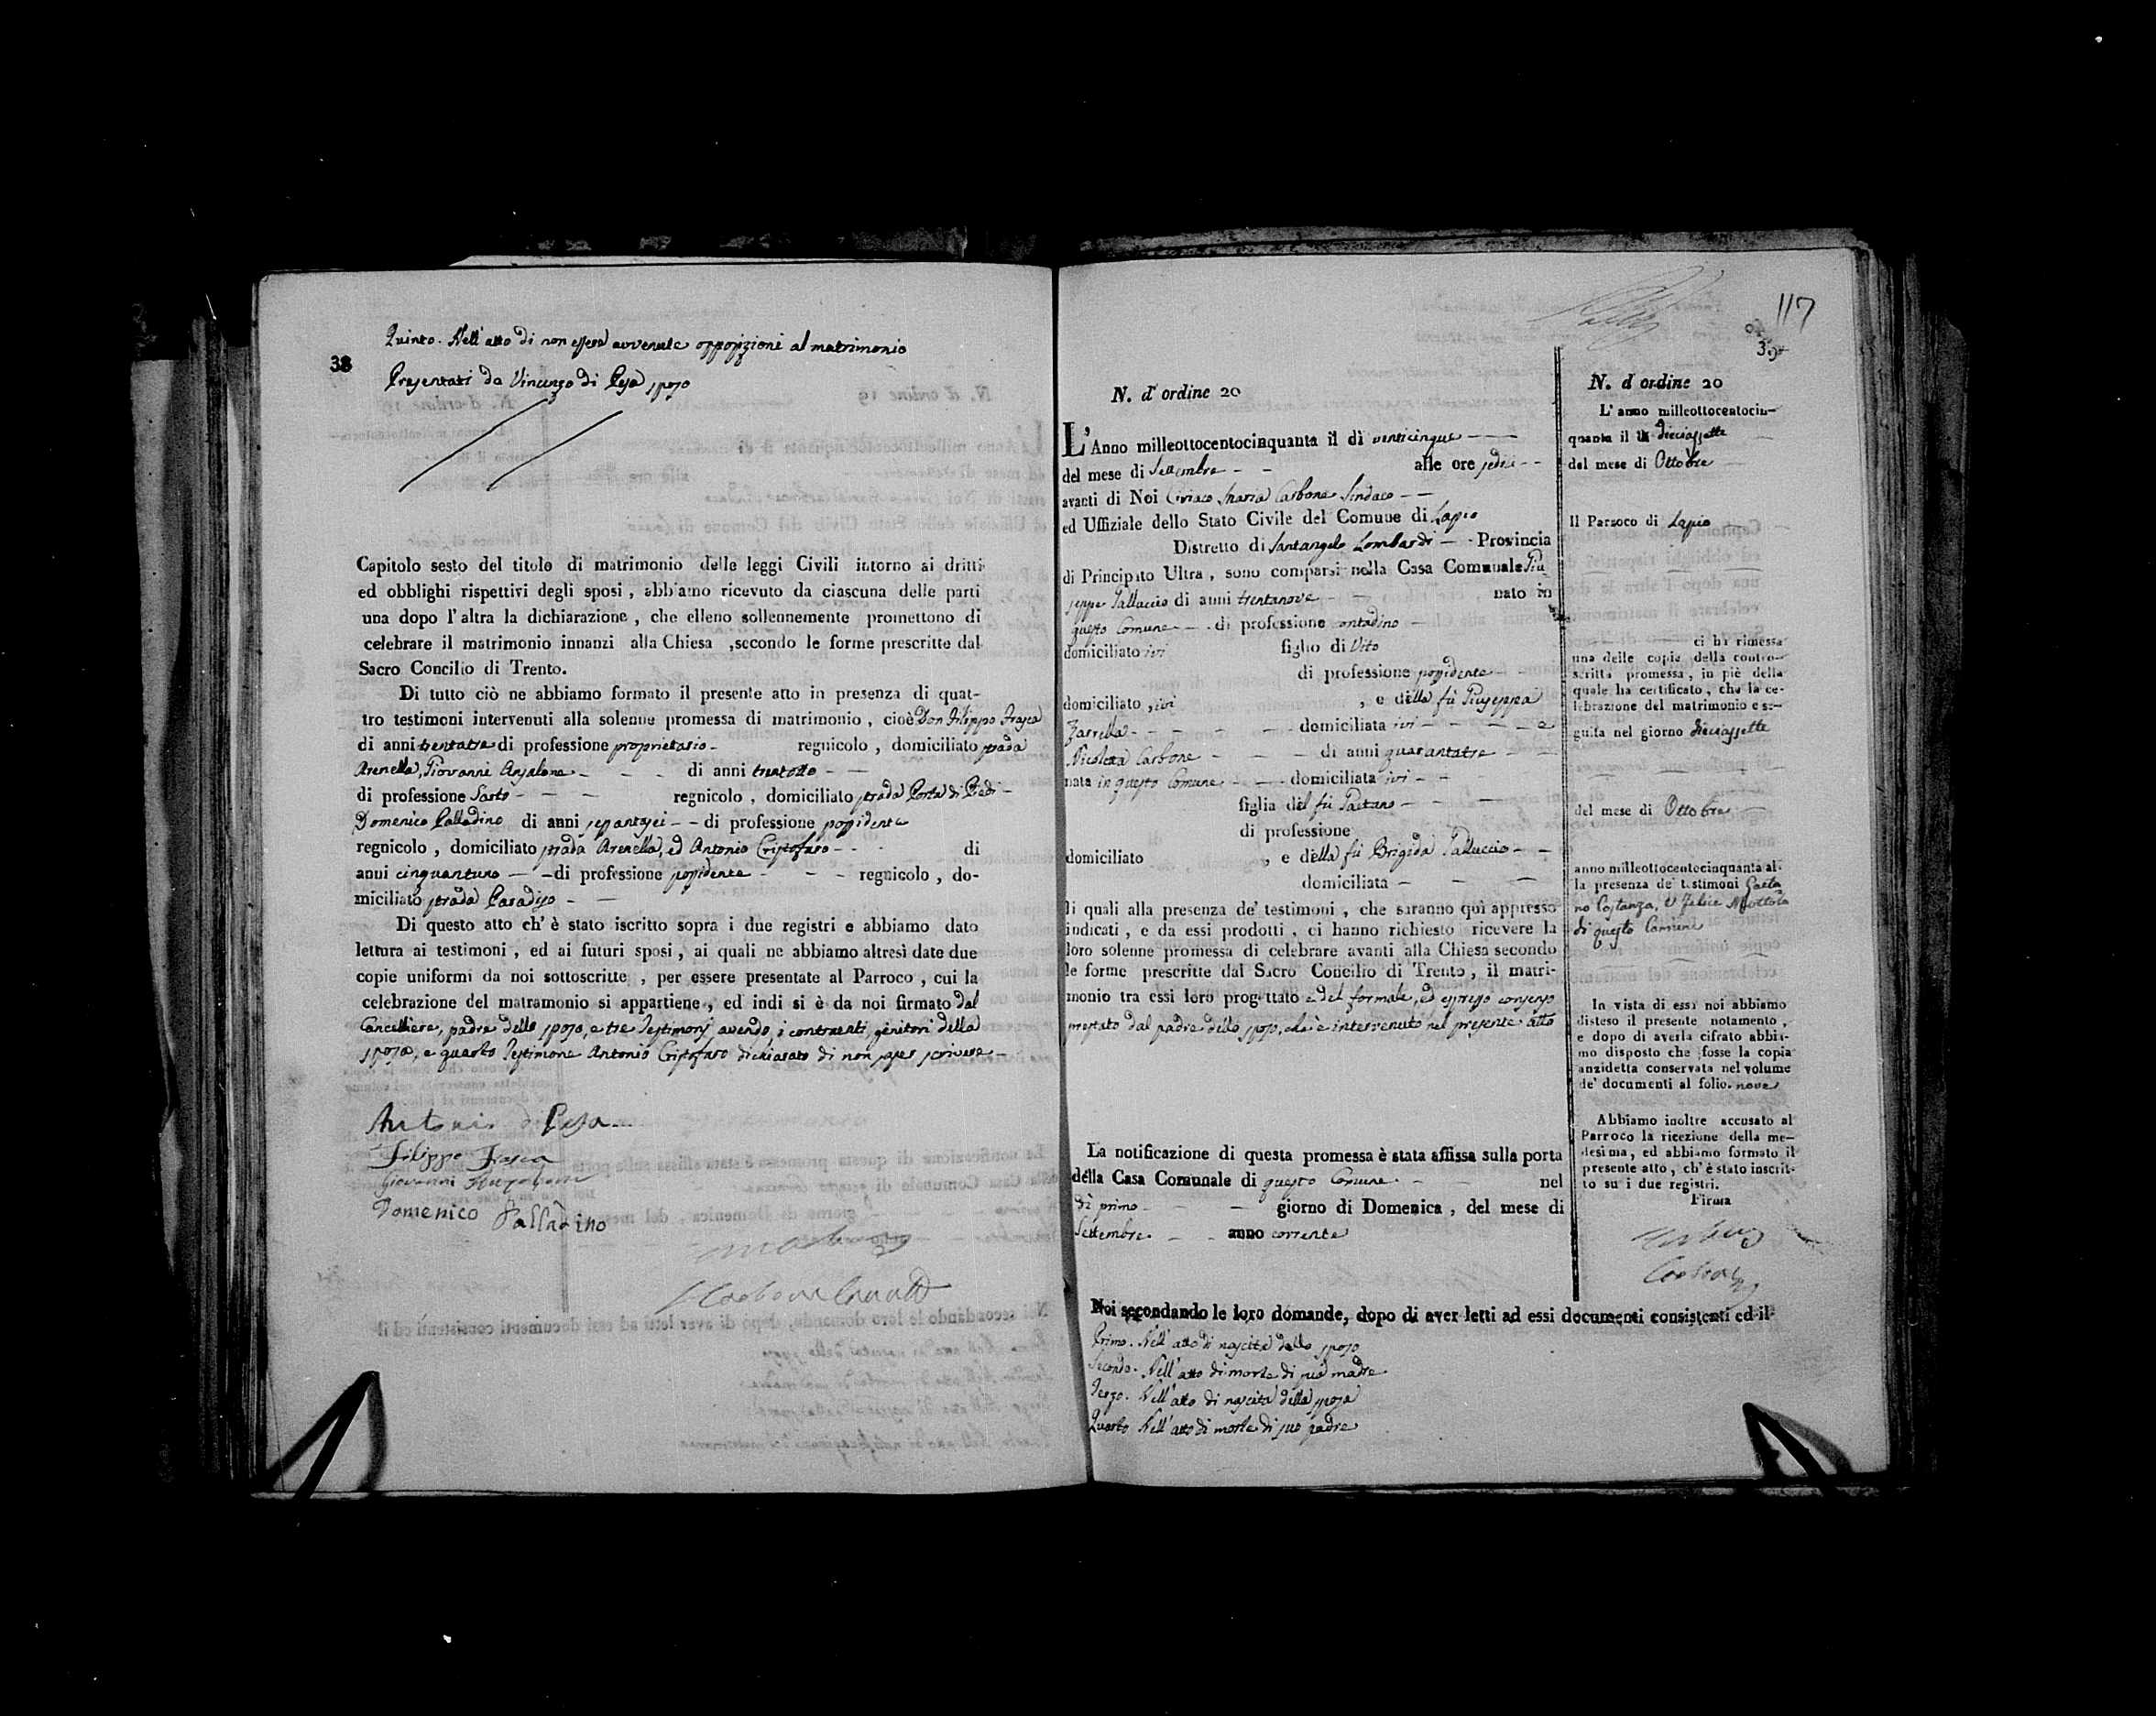 38
Quinto. Nell' atto di non essere avvenute opposizioni al matrimonio
Presentati da Vincenzo di Pesa sposo
Capitolo sesto del titolo di matrimonio delle leggi Civili intorno ai dritti
ed obblighi rispettivi degli sposi, abbiamo ricevuto da ciascuna delle parti
una dopo l'altra la dichiarazione, che elleno sollennemente promettono di
celebrare il matrimonio innanzi alla Chiesa ,secondo le forme prescritte dal
Sacro Concilio di Trento.
Di tutto ciò ne abbiamo formato il presente atto in presenza di quat-
tro testimoni intervenuti alla solenne promessa di matrimonio, cioè Don Filippo Frasca
di anni trentatre di professione proprietario - regnicolo, domiciliato strada
Arenella, Giovanni Anzalone - - - di anni trentotto - -
di professione Sarto - - - regnicolo, domiciliato strada Porta di Piedi -
Domenico Palladino di anni sessantasei - - di professione possidente
regnicolo, domiciliato strada Arenella, ed Antonio Cristofaro - - di
anni cinquantuno - - di professione possidente - - - regnicolo, do-
miciliato strada Paradiso - -
Di questo atto ch' è stato iscritto sopra i due registri e abbiamo dato
lettura ai testimoni, ed ai futuri sposi, ai quali ne abbiamo altresì date due
copie uniformi da noi sottoscritte, per essere presentate al Parroco, cui la
celebrazione del matramonio si appartiene, ed indi si è da noi firmato dal
Cancelliere, padre dello sposo, e tre Testimonj avendo, i contraenti, genitori della
sposa, e quarto Testimone Antonio Cristofaro dichiarato di non saper scrivere -
Antonio di Pesa
Filippo Frasca
Giovanni Anzalone
Domenico Palladino
117
39
N. d' ordine 20
L'Anno milleottocentocinquanta il dì venticinque - -
del mese di Settembre - - alle ore sedici - -
avanti di Noi Ciriaco Maria Carbone Sindaco - -
ed Uffiziale dello Stato Civile del Comune di Lapio
Distretto di Santangelo Lombardi - - Provincia
di Principato Ultra, sono comparsi nella Casa Comunale Giu-
seppe Talluccio di anni trentanove - - nato in
questo Comune - - di professione contadino -
domiciliato ivi figlio di Vito
di professione possidente - -
domiciliato, ivi , e della fù Giuseppa
Zarrella - - - - - domiciliata ivi - - - - e
Nicoletta Carbone - - - di anni quarantatre - -
nata in questo Comune - - domiciliata ivi - -
figlia del fù Gaetano - - -
di professione
domiciliato , e della fù Brigida Talluccio - -
domiciliata - - -
li quali alla presenza de' testimoni, che saranno quì appresso
indicati, e da essi prodotti, ci hanno richiesto ricevere la
loro solenne promessa di celebrare avanti alla Chiesa secondo
le forme prescritte dal Sacro Concilio di Trento, il matri-
monio tra essi loro progettato e del formale, ed espresso consenso
prestato dal padre dello sposo, che è intervenuto nel presente atto
La notificazione di questa promessa è stata affissa sulla porta
della Casa Comunale di questo Comune - - nel
dì primo - - - giorno di Domenica, del mese di
Settembre - - anno corrente
Noi secondando le loro domande, dopo di aver letti ad essi documenti consistenti ed il
Primo. Nell' atto di nascita dello sposo
Secondo. Nell' atto di morte di sua madre
Terzo. Nell' atto di nascita della sposa
Quarto Nell' atto di morte di suo padre
N. d' ordine 20
L' anno milleottocentocin-
quanta il dì diciassette
del mese di Ottobre
Il Parroco di Lapio
ci ha rimessa
una delle copie della contro-
scritta promessa, in piè della
quale ha certificato, che la ce-
lebrazione del matrimonio è se-
guita nel giorno diciassette
del mese di Ottobre
anno milleottocentocinquanta al-
la presenza de' testimoni Gaeta
no Costanza, e Felice Mottola
di questo Comune
In vista di essa noi abbiamo
disteso il presente notamento,
e dopo di averla cifrato abbia-
mo disposto che fosse la copia
anzidetta conservata nel volume
de' documenti al folio. nove
Abbiamo inoltre accusato al
Parroco la ricezione della me-
desima, ed abbiamo formato il
presente atto, ch' è stato inscrit-
to su i due registri.
Firma